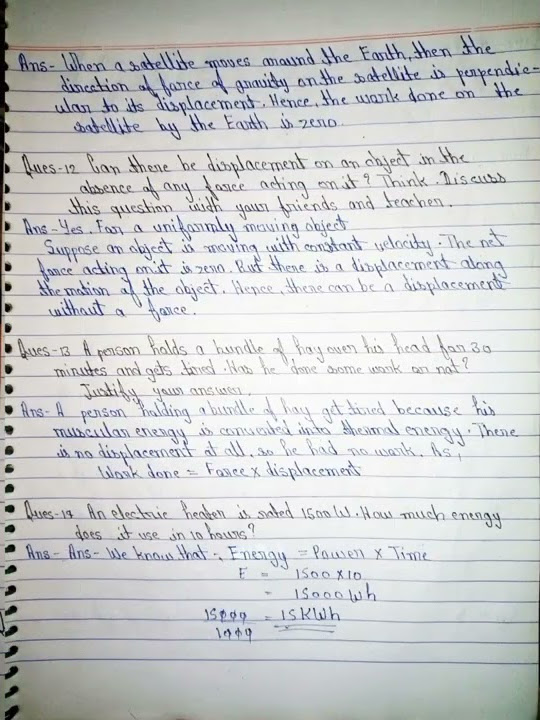 Ans- When a satellite moves around the Earth, then the
direction of force of gravity on the satellite is perpendic-
ular to its displacement. Hence, the work done on the
satellite by the Earth is zero.
Ques-12 Can there be displacement on an object in the
absence of any force acting on it? Think. Discuss
this question with your friends and teacher.
Ans- Yes. For a uniformly moving object
Suppose an object is moving with constant velocity. The net
force acting on it is zero. But there is a displacement along
the motion of the object. Hence, there can be a displacement
without a force.
Ques-13 A person holds a bundle of hay over his head for 30
minutes and gets tired. Has he done some work or not?
Justify your answer.
Ans- A person holding a bundle of hay get tired because his
muscular energy is converted into thermal energy. There
is no displacement at all, so he had no work. As,
Work done = Force x displacement
Ques-14 An electric heater is rated 1500 W. How much energy
does it use in 10 hours?
Ans- Ans- We know that:, Energy = Power x Time
E = 1500x10
= 15000 Wh
15000 = 15 KWh
1000